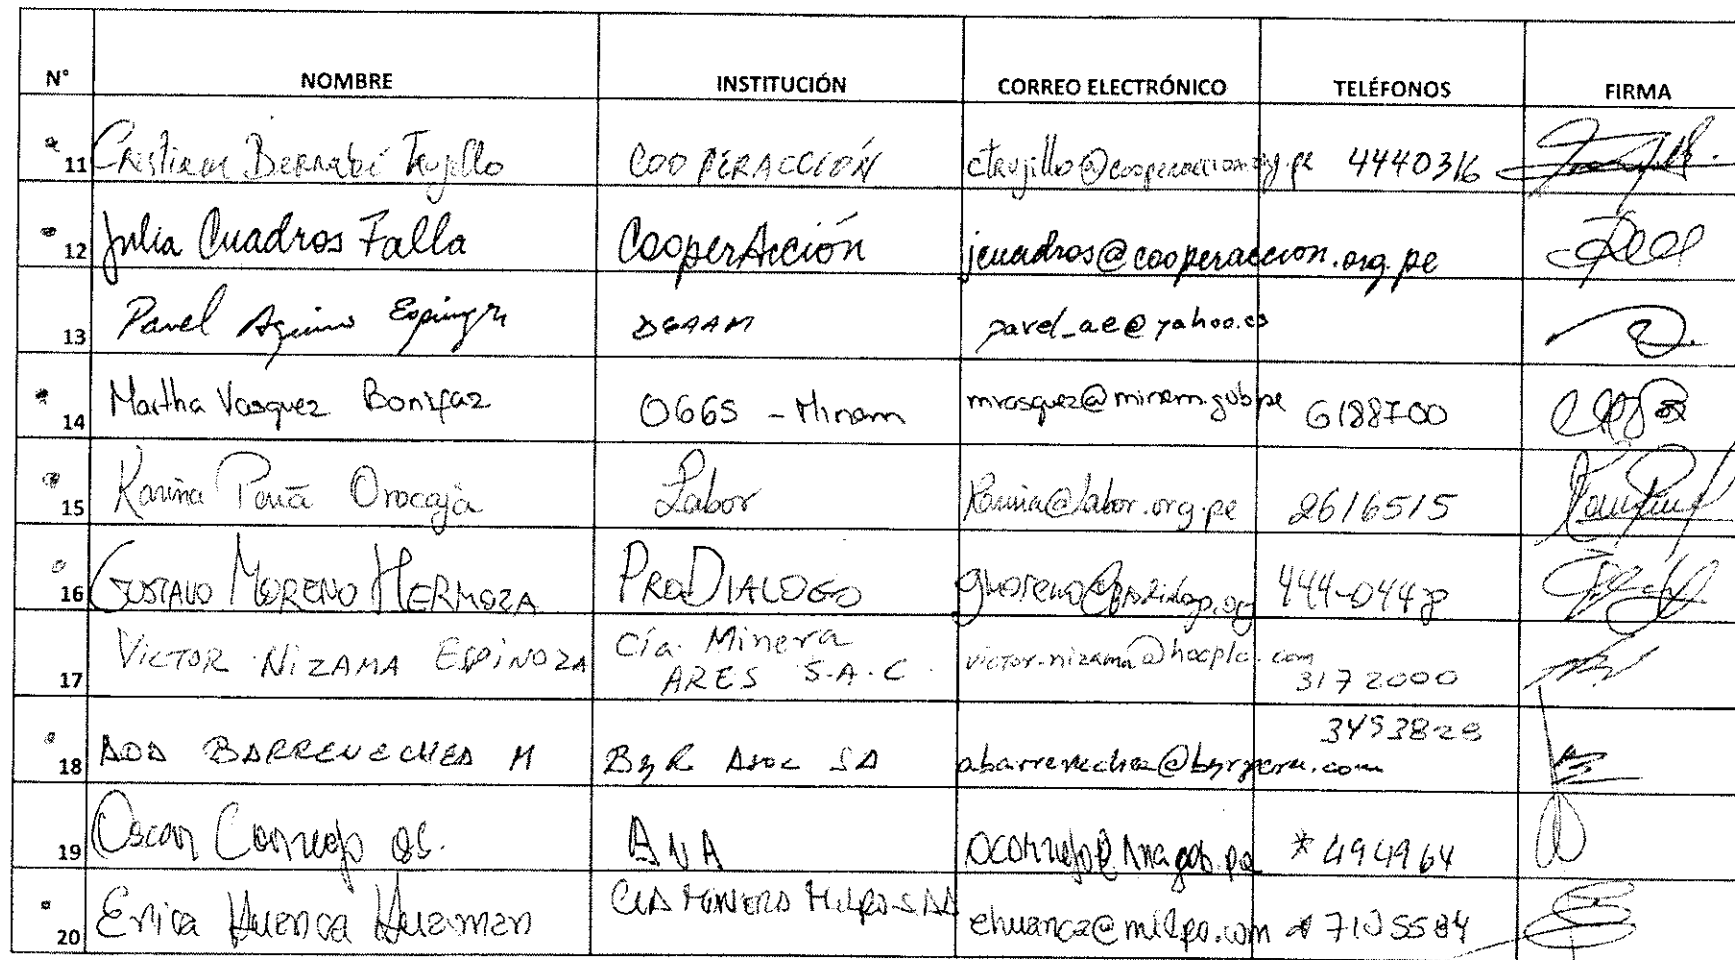 N° NOMBRE INSTITUCIÓN CORREO ELECTRÓNICO TELÉFONOS FIRMA
11 Cristian Bernabé Trujillo COOPERACCIÓN ctrujillo@cooperaccion.org.pe 4440316
12 Julia Cuadros Falla CooperAcción jcuadros@cooperaccion.org.pe
13 Pavel Aquino Espinoza DGAAM pavel_ae@yahoo.es
14 Martha Vasquez Bonifaz OGGS - Minem mvasquez@minem.gob.pe 6188700
15 Karina Labor Karina@labor.org.pe 2616515
16 GUSTAVO MORENO HERMOZA PRODIALOGO gmoreno@prodialogo.org 444-0448
17 VICTOR NIZAMA ESPINOZA Cía. Minera ARES S.A.C. victor.nizama@hocplc.com 3172000
18 ADA BARRENECHEA M ByR Asoc SA abarrenechea@byrperu.com 3453828
19 Oscar Cornejo ANA ocornejo@ana.gob.pe *494964
20 Erica Huanca Huaman CIA MINERA MILPO SAA ehuanca@milpo.com 7105584